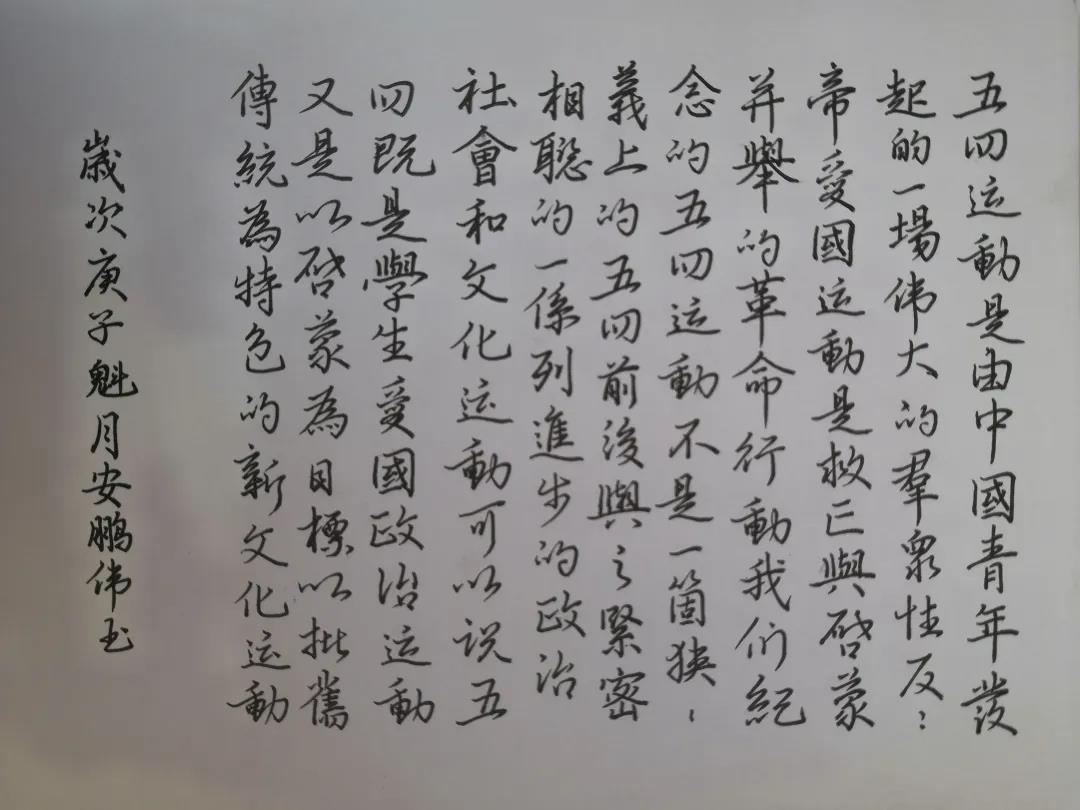 五四运動是由中國青年發
起的一場伟大的羣衆性反：
帝愛國运動是救亡與啓蒙
并舉的革命行動我们紀
念的五四运動不是一箇狹：
義上的五四前後與之緊密
相聯的一係列進步的政治
社會和文化运動可以说五
四既是學生愛國政治运動
又是以啓蒙為目標以批舊
傳統為特色的新文化运動
歲次庚子魁月安鹏伟书